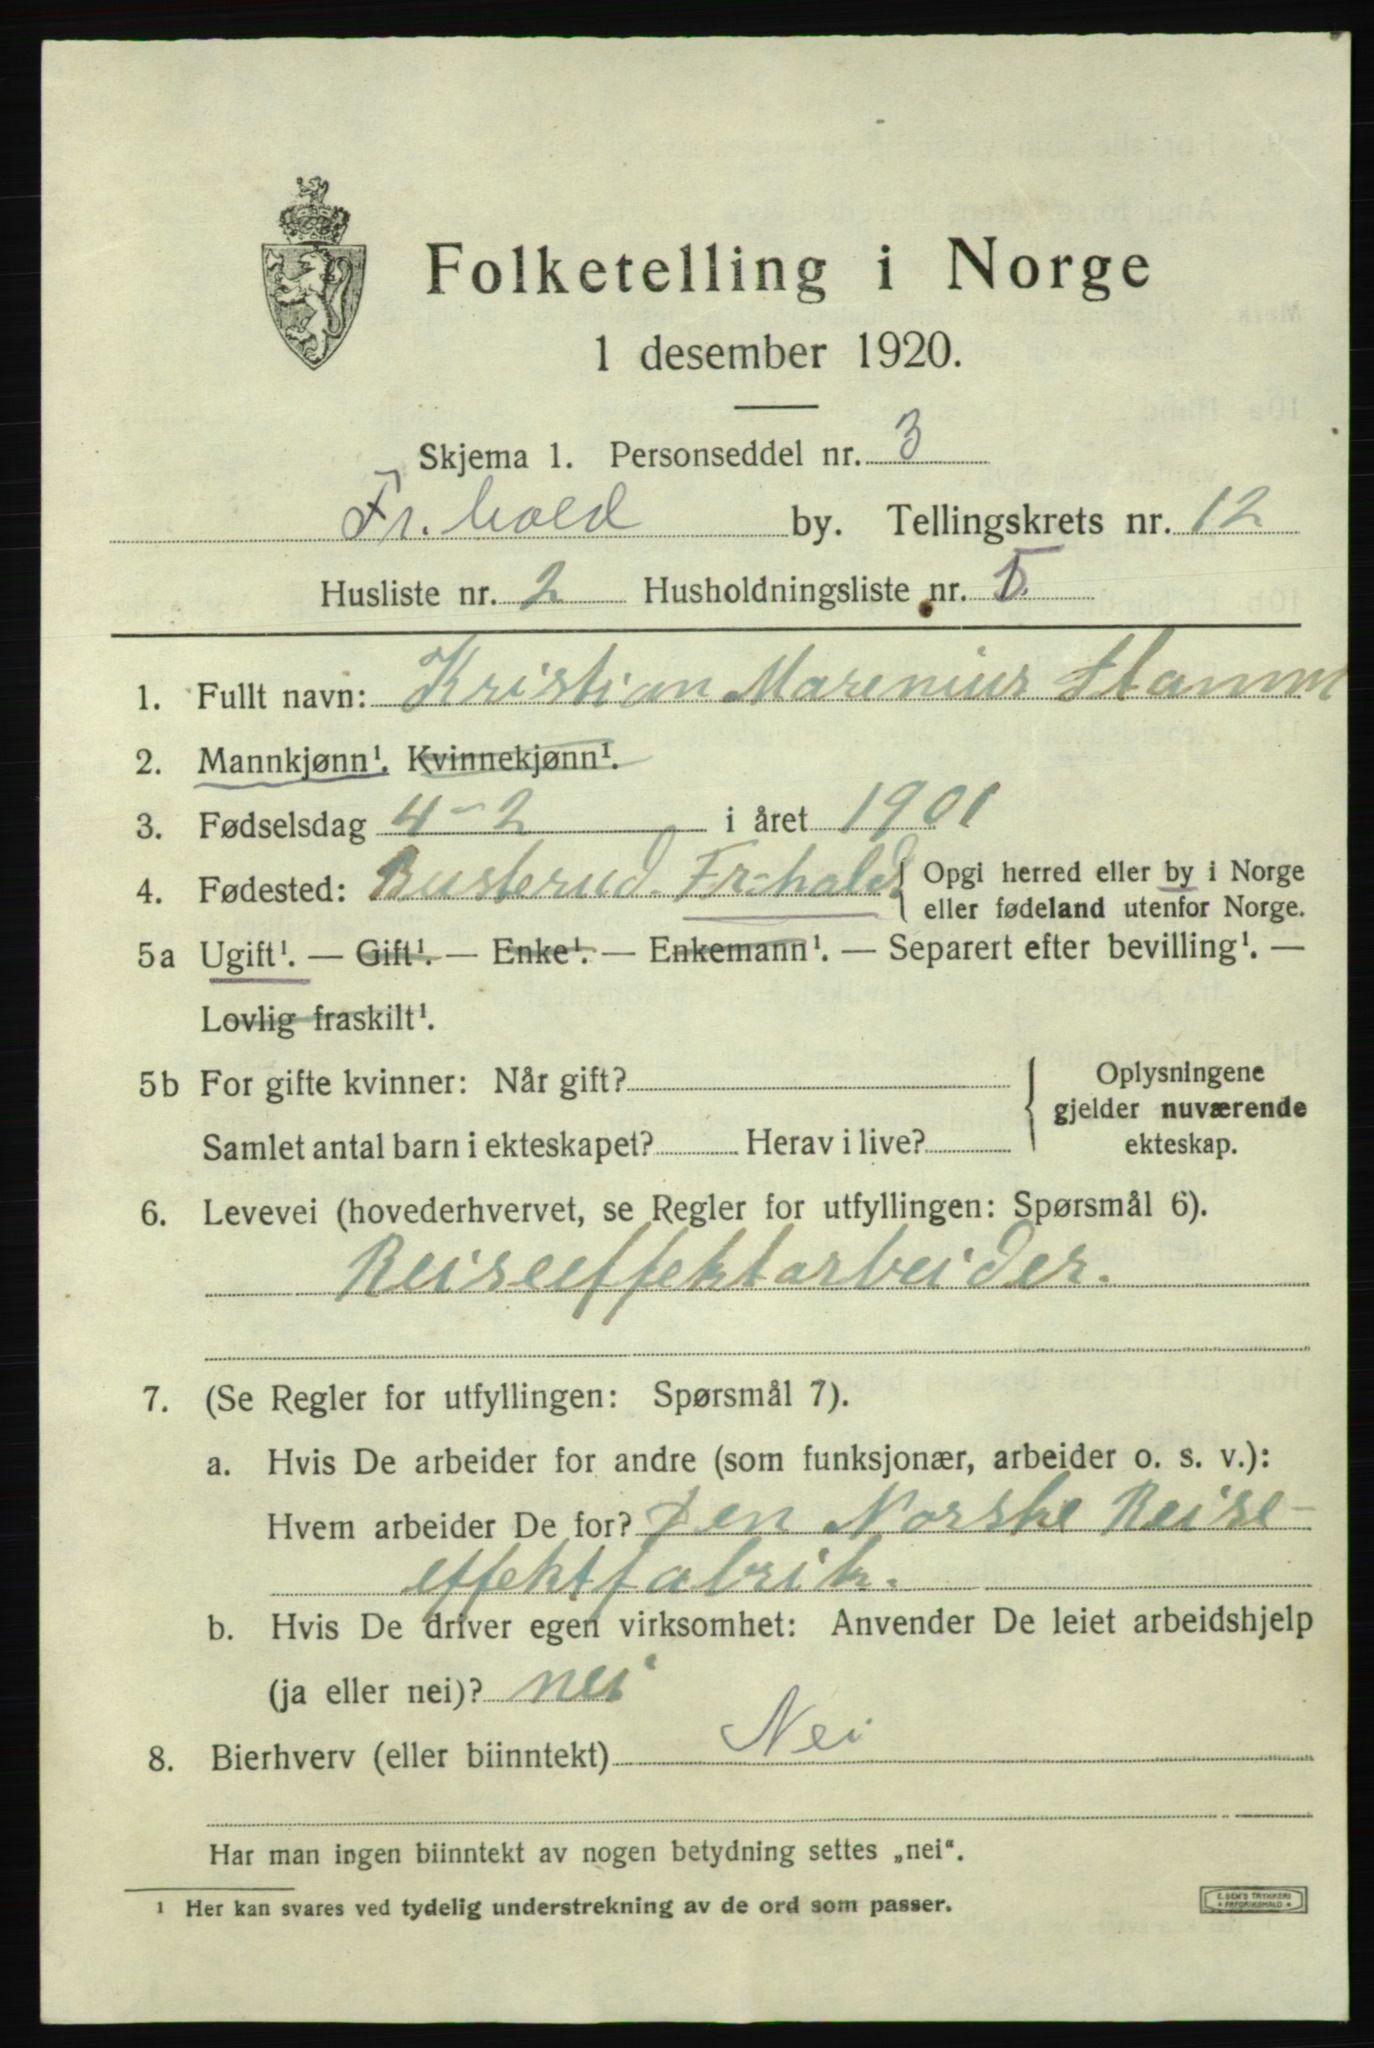 Folketelling i Norge
1 desember 1920.
Skjema 1. Personseddel nr. 3
Fr.hald by. Tellingskrets nr. 12
Husliste nr. 2 Husholdningsliste nr. 5
1. Fullt navn: Kristian Marenius Stamm
2. Mannkjønn¹. Kvinnekjønn¹.
3. Fødselsdag 4-2 i året 1901
4. Fødested: Busterud Fr-hald { Opgi herred eller by i Norge
eller fødeland utenfor Norge.
5a Ugift¹. — Gift¹. — Enke¹. — Enkemann¹. — Separert efter bevilling¹. —
Lovlig fraskilt¹.
5b For gifte kvinner: Når gift? Oplysningene
gjelder nuværende
Samlet antal barn i ekteskapet? Herav i live? ekteskap.
6. Levevei (hovederhvervet, se Regler for utfyllingen: Spørsmål 6).
Reiseeffektarbeider.
7. (Se Regler for utfyllingen: Spørsmål 7).
a. Hvis De arbeider for andre (som funksjonær, arbeider o. s. v.):
Hvem arbeider De for? Den Norske Reise-
effektfabrik.
b. Hvis De driver egen virksomhet: Anvender De leiet arbeidshjelp
(ja eller nei)? nei
8. Bierhverv (eller biinntekt) Nei
Har man ingen biinntekt av nogen betydning settes „nei“.
¹ Her kan svares ved tydelig understrekning av de ord som passer.
E. SEM'S TRYKKERI
FREDRIKSHALD